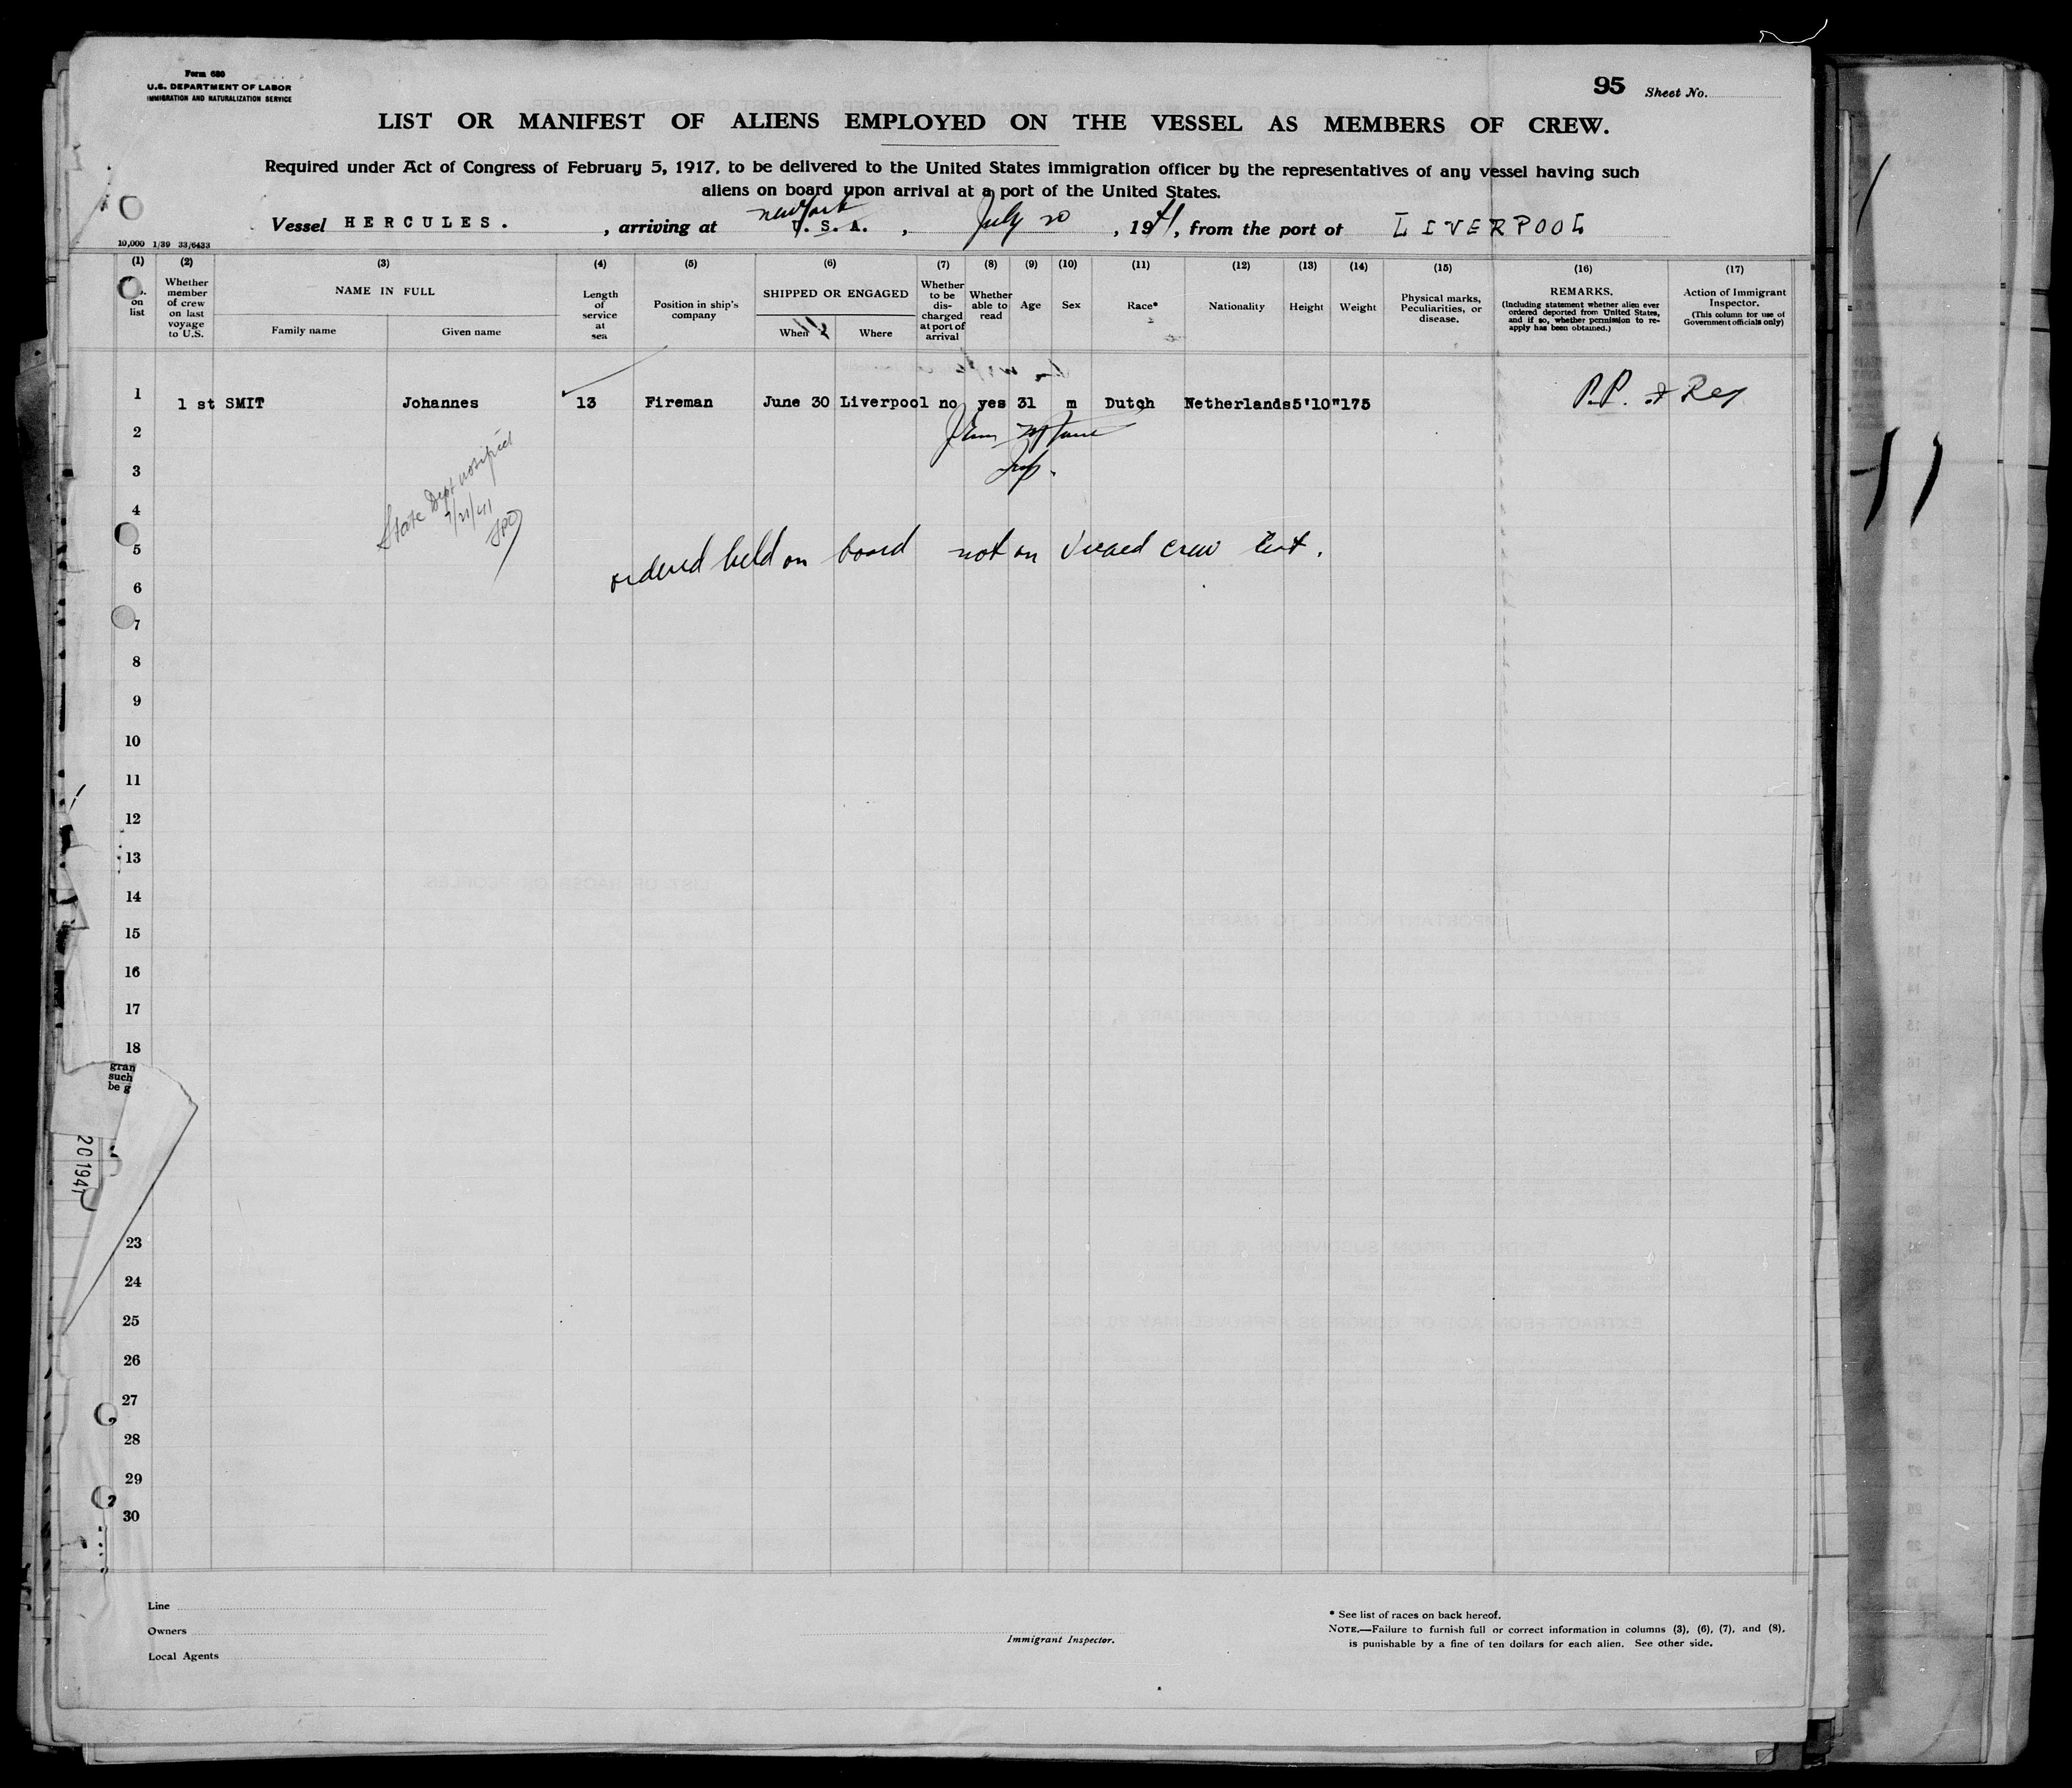 Form 680
U.S. DEPARTMENT OF LABOR
IMMIGRATION AND NATURALIZATION SERVICE
95 Sheet No.
LIST OR MANIFEST OF ALIENS EMPLOYED ON THE VESSEL AS MEMBERS OF CREW.
Required under Act of Congress of February 5, 1917, to be delivered to the United States immigration officer by the representatives of any vessel having such
aliens on board upon arrival at a port of the United States.
New York
Vessel HERCULES. , arriving at U.S.A. , July 20 , 1941, from the port of LIVERPOOL
10,000 1/39 33/6433
(1) (2) (3) (4) (5) (6) (7) (8) (9) (10) (11) (12) (13) (14) (15) (16) (17)
on list
Whether member of crew on last voyage to U.S.
NAME IN FULL
Family name Given name
Length of service at sea
Position in ship's company
SHIPPED OR ENGAGED
When Where
Whether to be discharged at port of arrival
Whether able to read
Age
Sex
Race*
Nationality
Height
Weight
Physical marks, Peculiarities, or disease.
REMARKS.
(Including statement whether alien ever ordered deported from United States, and if so, whether permission to re-apply has been obtained.)
Action of Immigrant Inspector.
(This column for use of Government officials only)
1 1 st SMIT Johannes 13 Fireman June 30 Liverpool no yes 31 m Dutch Netherlands 5'10" 175 P.P.
2
3
State Dept notified
7/21/41
4
5
ordered held on board not on visaed crew list.
6
7
8
9
10
11
12
13
14
15
16
17
18
gran
such
be g
20 1941
23
24
25
26
27
28
29
30
Line
Owners
Local Agents
Immigrant Inspector.
* See list of races on back hereof.
NOTE.—Failure to furnish full or correct information in columns (3), (6), (7), and (8),
is punishable by a fine of ten dollars for each alien. See other side.